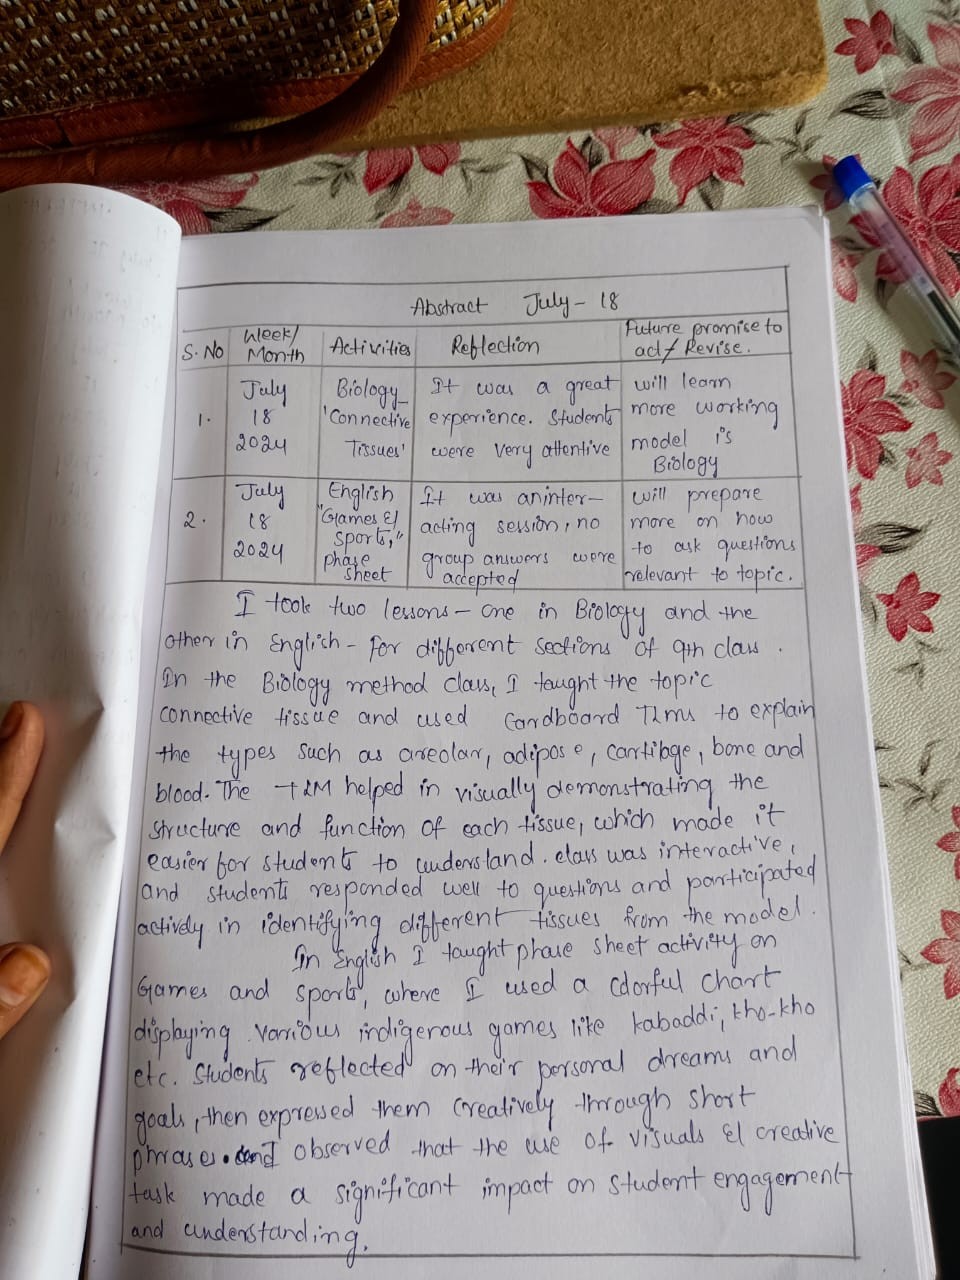 Abstract July - 18
S. No Week/ Month Activities Reflection Future promise to act / Revise.
1. July 18 2024 Biology 'Connective Tissues' It was a great experience. Students were very attentive will learn more working model i's Biology
2. July 18 2024 English "Games & Sports," phase sheet It was aninter- acting session, no group answers were accepted will prepare more on how to ask questions relevant to topic.
I took two lessons - one in Biology and the
other in English - For different sections of 9th class.
In the Biology method class, I taught the topic
connective tissue and used Cardboard TLMs to explain
the types such as areolar, adipose, cartilage, bone and
blood. The TLM helped in visually demonstrating the
structure and function of each tissue, which made it
easier for students to understand. class was interactive,
and students responded well to questions and participated
actively in identifying different tissues from the model.
In English I taught phase sheet activity on
Games and sports, where I used a colorful chart
displaying various indigenous games like kabaddi, kho-kho
etc. Students reflected on their personal dreams and
goals, then expressed them creatively through short
phrases. I observed that the use of visuals & creative
task made a significant impact on student engagement
and understanding.